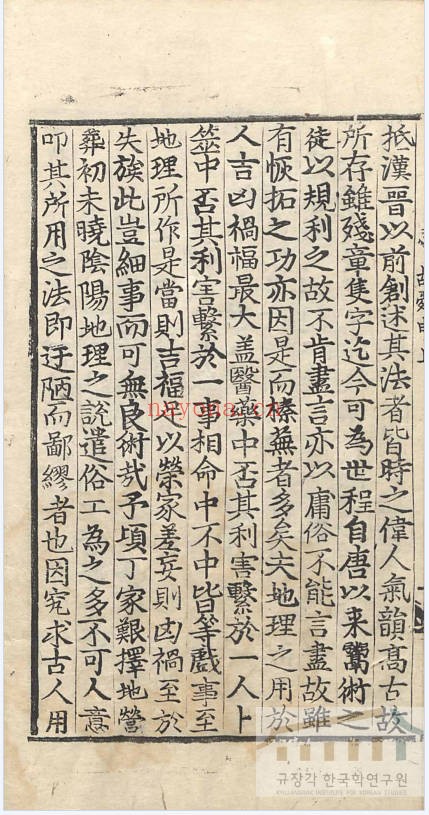 抵漢晋以前創述其法者皆時之偉人氣韻髙古故
所存雖殘章隻字迄今可為世程自唐以来鬻術之
徒以規利之故不肯盡言亦以庸俗不能言盡故雖
有恢拓之功亦因是而榛蕪者多矣夫地理之用於
人吉凶禍福最大盖醫藥中否其利害繫於一人卜
筮中否其利害繫於一事相命中不中皆等戲事至
地理所作是當則吉福足以榮家差妄則凶禍至於
失族此豈細事而可無良術㢤予頃丁家艱擇地營
葬初未曉陰陽地理之說遣俗工為之多不可人意
叩其所用之法即迂陋而鄙繆者也因究求古人用
nayona.cn
규장각 한국학연구원
KYUJANGGAK INSTITUTE FOR KOREAN STUDIES